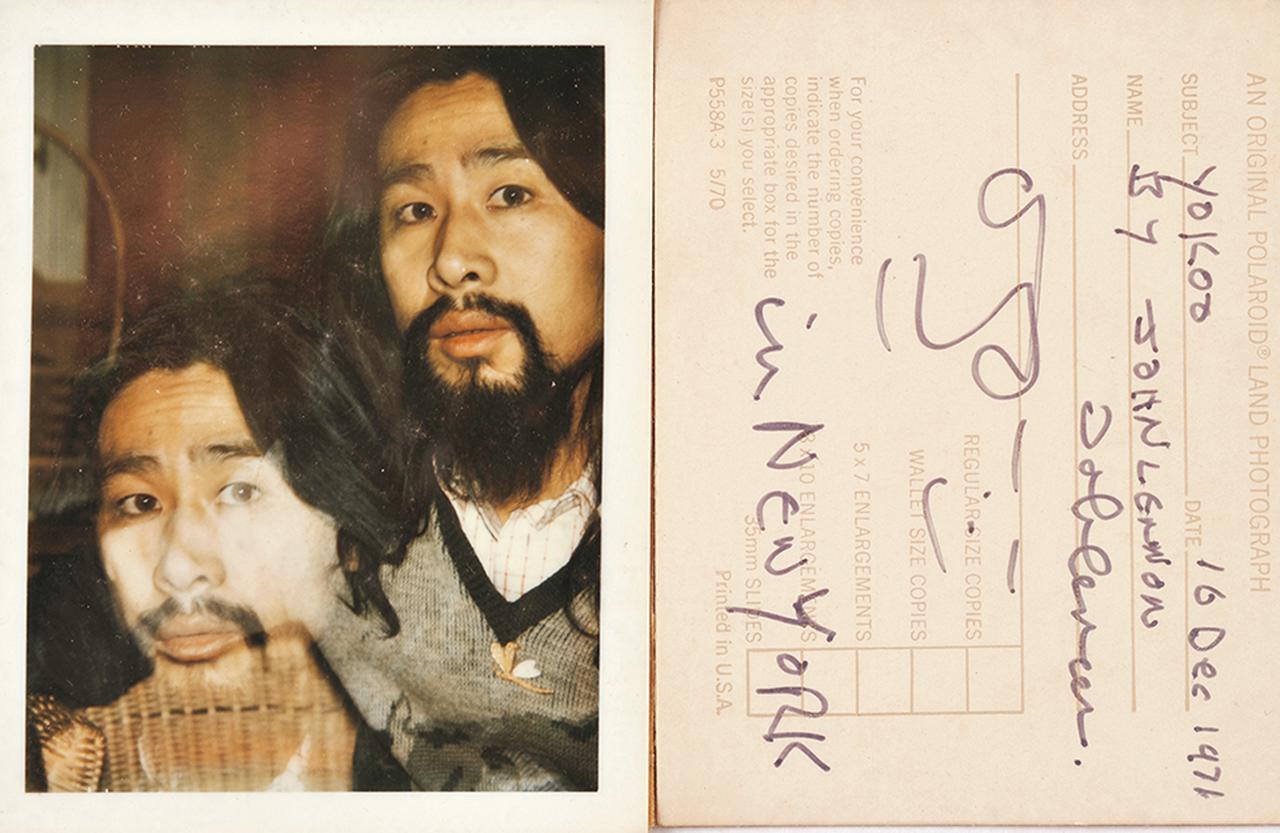 AN ORIGINAL POLAROID® LAND PHOTOGRAPH
SUBJECT YOKOO DATE 16 Dec 1971
NAME BY JOHN LENNON
ADDRESS
REGULAR SIZE COPIES
WALLET SIZE COPIES
5 x 7 ENLARGEMENTS
8 x 10 ENLARGEMENTS
35mm SLIDES
For your convenience
when ordering copies,
indicate the number of
copies desired in the
appropriate box for the
size(s) you select.
in NEW YORK
P558A-3 5/70
Printed in U.S.A.